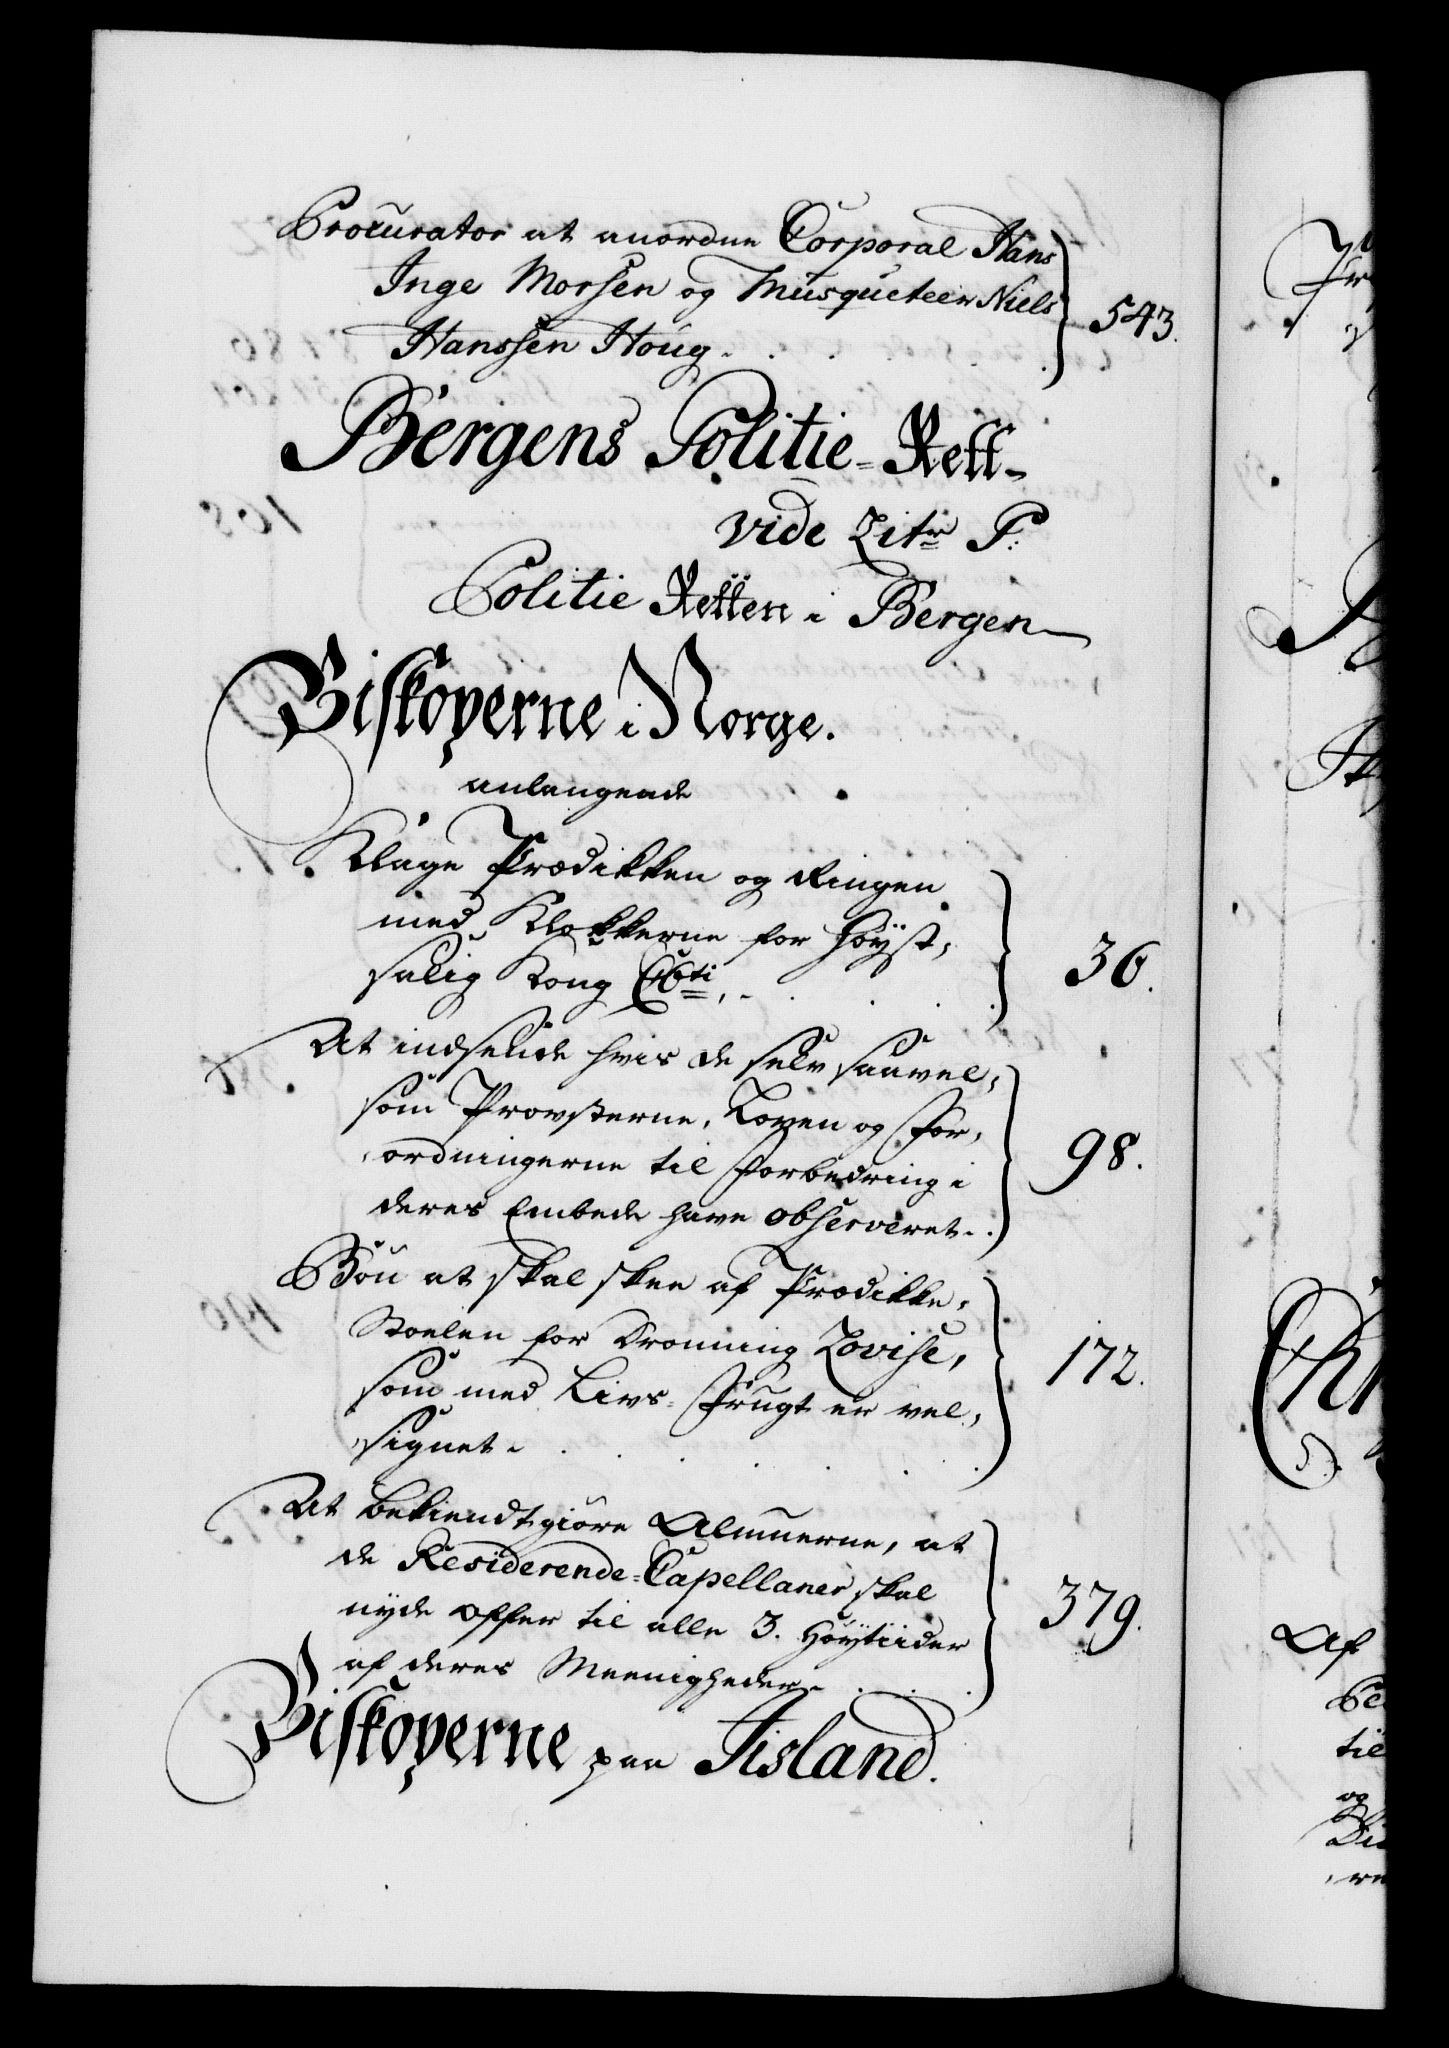 Procurator at anordne Corporal Hans
Inge Morsen og Musqueteer Niels
Hanssen Houg. 543.
Bergens Politie-Rett
vide Litr P.
Politie Retten i Bergen
Biskoperne i Norge.
anlangende
Klage Prædikken og Ringen
med Klokkerne for Høyst-
salig Kong C6ti, 36.
At indsende hvis de selv saavel-
som Provsterne, Loven og For-
ordningerne til Forbedring i
deres Embede have observeret. 98.
Bøn at skal skee af Prædikke-
Stoelen for Dronning Lovise,
som med Livs-Frugt er vel-
signet. 172.
At bekiendtgiøre Almuerne, at
de Residerende-Capellaner skal
nyde Offer til alle 3. Høytiider
af deres Meenigheder. 379.
Biskoperne paa Jisland.
Af
til
og